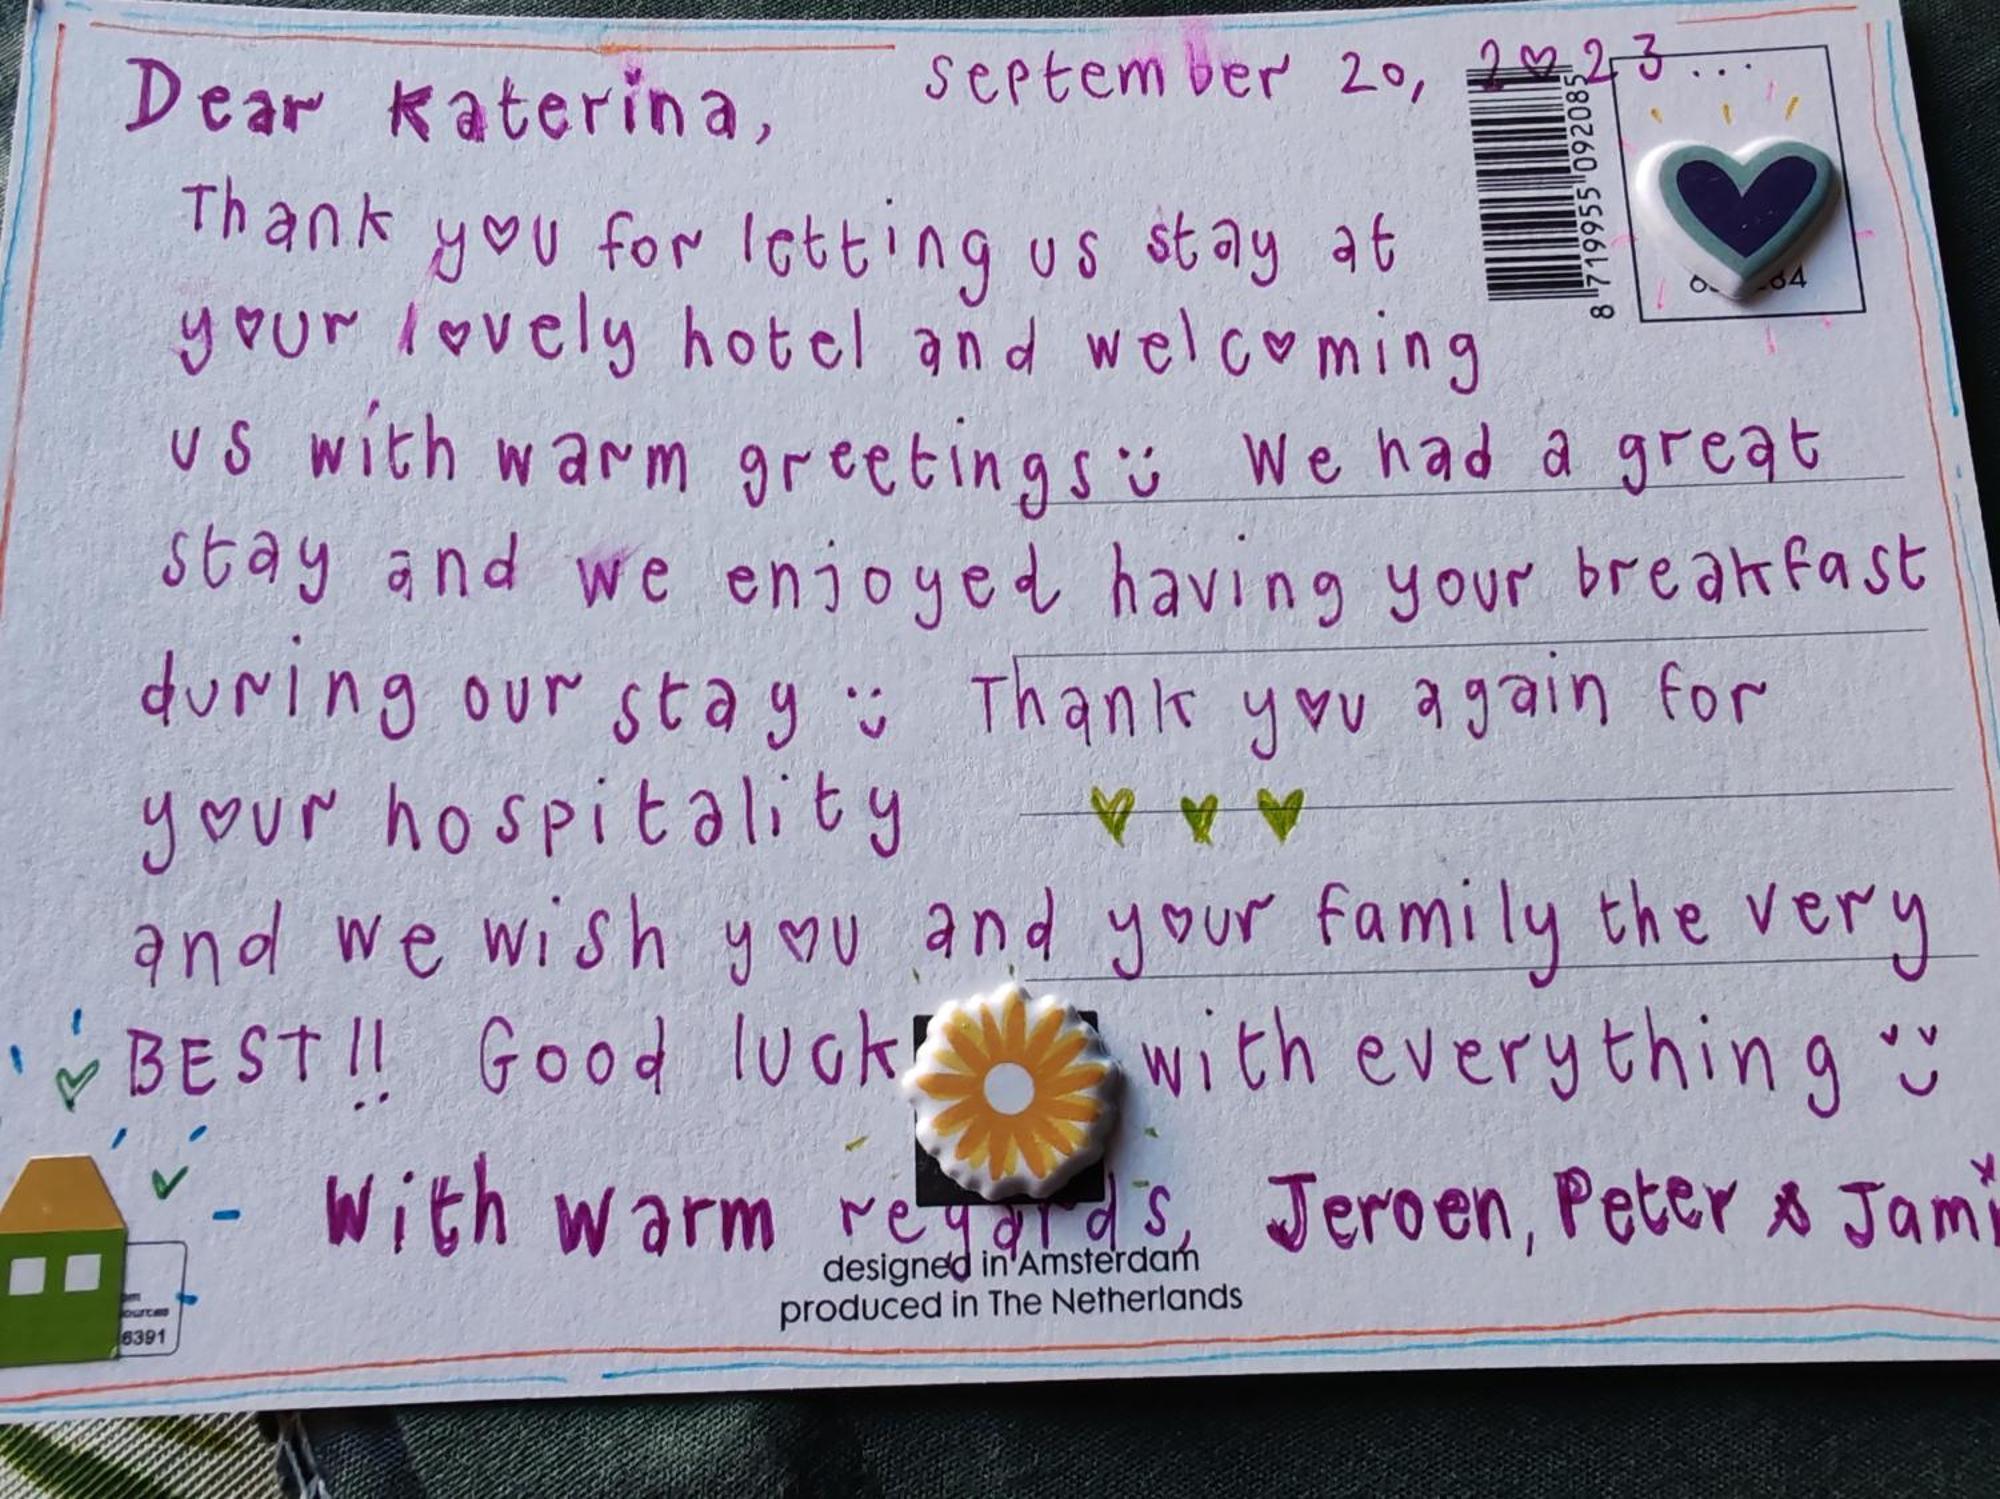 Dear Katerina, september 20, 2023...
Thank you for letting us stay at
your lovely hotel and welcoming
us with warm greetings We had a great
stay and we enjoyed having your breakfast
during our stay Thank you again for
your hospitality
and we wish you and your family the very
BEST!! Good luck with everything
- With warm regards, Jeroen, Peter & Jami
designed in Amsterdam
produced in The Netherlands
8 719955 092085
6391